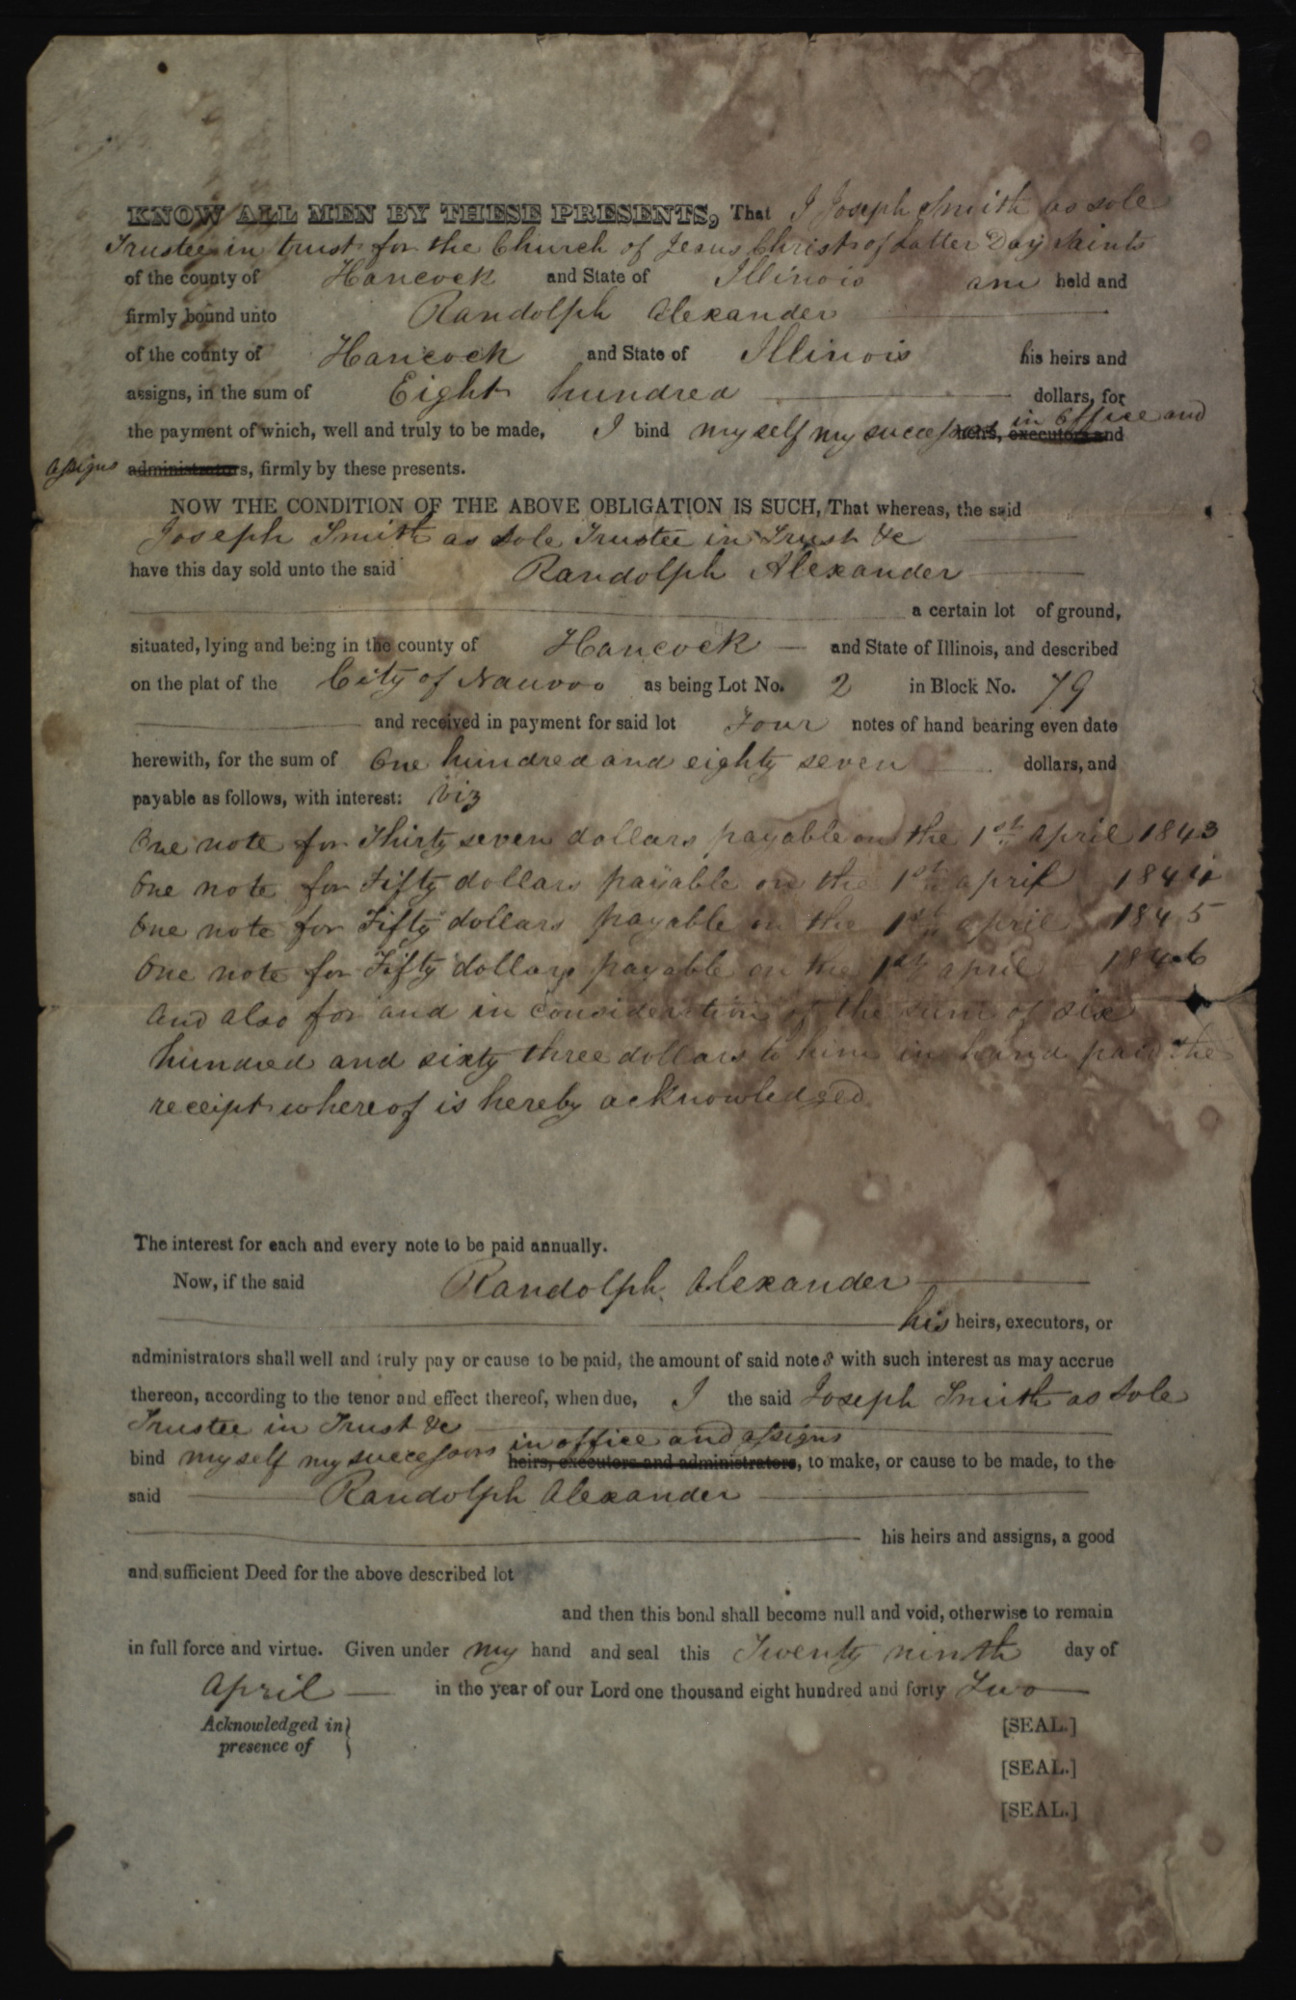 KNOW ALL MEN BY THESE PRESENTS, That I Joseph Smith as sole
Trustee in trust for the Church of Jesus Christ of Latter Day Saints
of the county of Hancock and State of Illinois am held and
firmly bound unto Randolph Alexander
of the county of Hancock and State of Illinois his heirs and
assigns, in the sum of Eight hundred dollars, for
the payment of which, well and truly to be made, I bind myself my successors in office and heirs, executors and
assigns administrators, firmly by these presents.
NOW THE CONDITION OF THE ABOVE OBLIGATION IS SUCH, That whereas, the said
Joseph Smith as sole Trustee in Trust &c
have this day sold unto the said Randolph Alexander
a certain lot of ground,
situated, lying and being in the county of Hancock and State of Illinois, and described
on the plat of the City of Nauvoo as being Lot No. 2 in Block No. 79
and received in payment for said lot Four notes of hand bearing even date
herewith, for the sum of One hundred and eighty seven dollars, and
payable as follows, with interest: viz
One note for Thirty seven dollars payable on the 1st April 1843
One note for Fifty dollars payable on the 1st april 1844
One note for Fifty dollars payable on the 1st april 1845
One note for Fifty dollars payable on the 1st april 1846
And also for and in consideration of the sum of six
hundred and sixty three dollars to him in hand paid the
receipt whereof is hereby acknowledged
The interest for each and every note to be paid annually.
Now, if the said Randolph Alexander
his heirs, executors, or
administrators shall well and truly pay or cause to be paid, the amount of said note s with such interest as may accrue
thereon, according to the tenor and effect thereof, when due, I the said Joseph Smith as Sole
Trustee in Trust &c
bind myself my successors in office and assigns heirs, executors and administrators, to make, or cause to be made, to the
said Randolph Alexander
his heirs and assigns, a good
and sufficient Deed for the above described lot
and then this bond shall become null and void, otherwise to remain
in full force and virtue. Given under my hand and seal this Twenty ninth day of
April in the year of our Lord one thousand eight hundred and forty Two
Acknowledged in } [SEAL.]
presence of
[SEAL.]
[SEAL.]